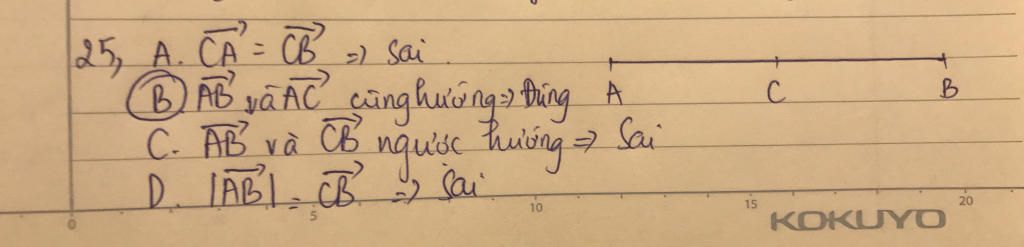 25, A. $\overrightarrow{CA} = \overrightarrow{CB}$ => Sai.
B. $\overrightarrow{AB}$ và $\overrightarrow{AC}$ cùng hướng => Đúng
A C B
C. $\overrightarrow{AB}$ và $\overrightarrow{CB}$ ngược hướng => Sai
D. $|\overrightarrow{AB}| = \overrightarrow{CB}$ => Sai
0 5 10 15 20
KOKUYO